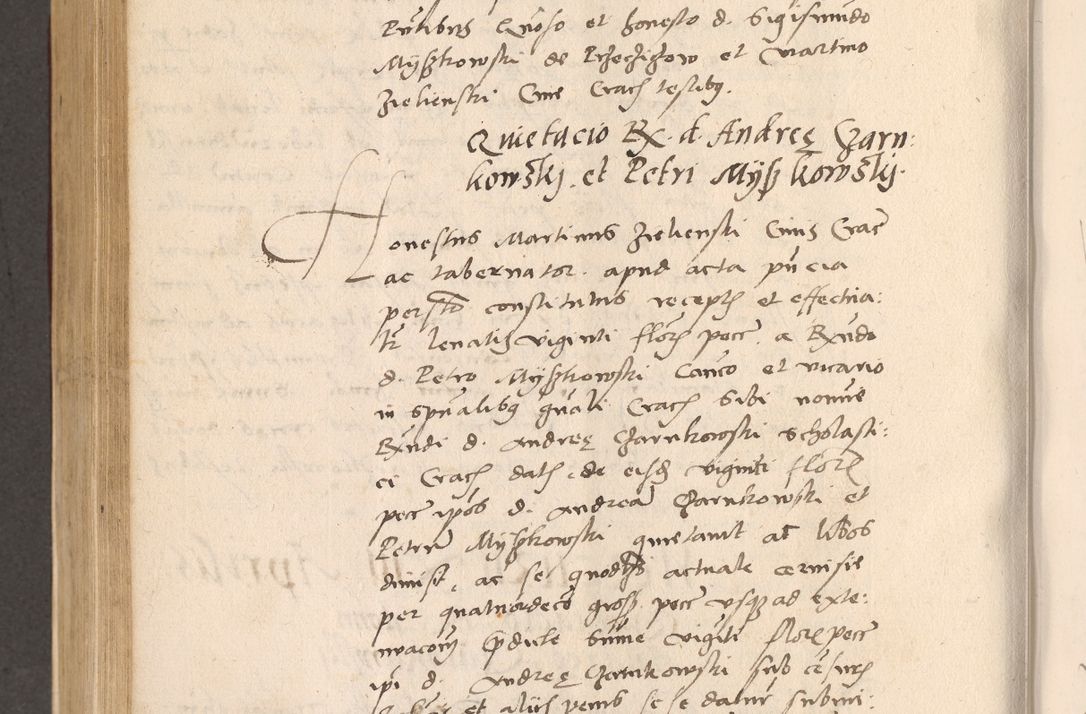 Pntibus Gnoso et honesto d. Sigismundo
Myszkowski de Przeczizow et Martino
Zielienski Cive Crac testibus.
Quietacio Rx. d. Andreę Czarn:
kowskij et Petri Myszkowskij.
Honestus Martinus Zielienski Civis Crac
ac tabernator. apud acta pncia
personalr constitutus receptis et effectua:
lr levatis viginti floren pecc a Rndo
d. Petro Myszkowski Canco et vicario
in spualibus gnali Crac sibi nomine
Rndi d. Andreę Czarnkowski Scholasti:
ci Crac datis, de eisdem viginti floren
pecc ipos d. Andream Czarnkowski et
Petrum Myszkowski quietavit ac libos
dimisit, ac se quod actuale cervisie
per quatuordecem gross pecc usque ad exte:
nuacom predicte summe viginti floren pecc
ipi d. Andreę Czarnkowski sub censuris
et aliis penis se se datur submi: